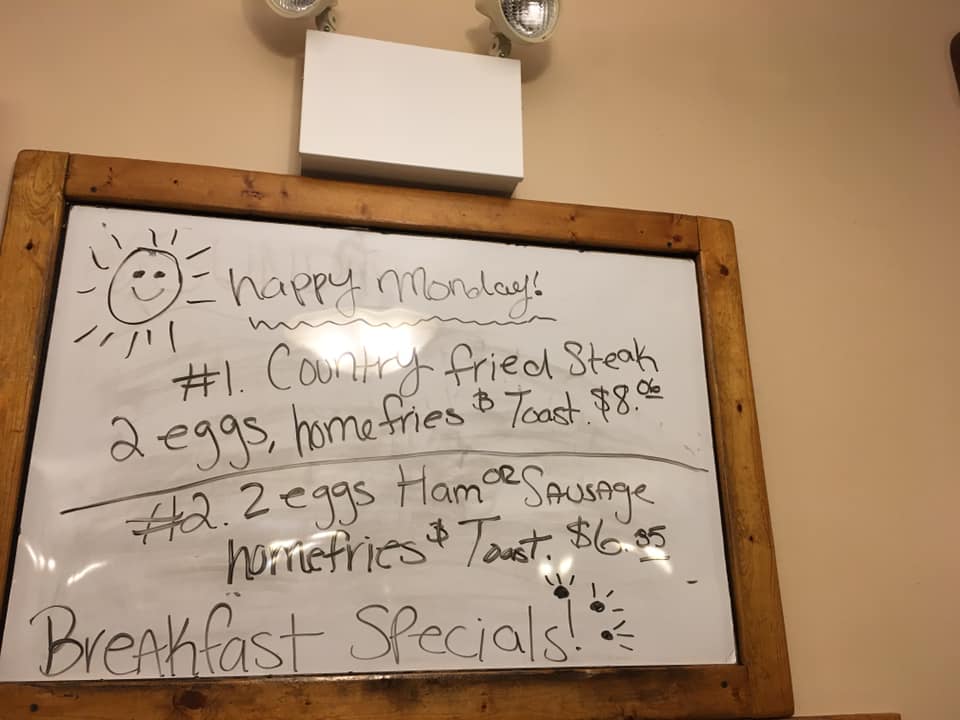 happy Monday!
#1. Country fried Steak
2 eggs, homefries & Toast. $8.06
#2. 2 eggs Ham OR SAUSAge
homefries & Toast. $6.95
BreAkfast Specials!